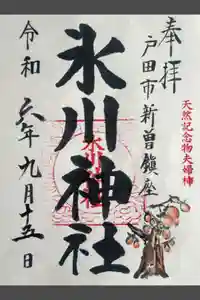 奉拝
戸田市新曽鎮座
天然記念物夫婦柿
氷川神社
令和六年九月十五日